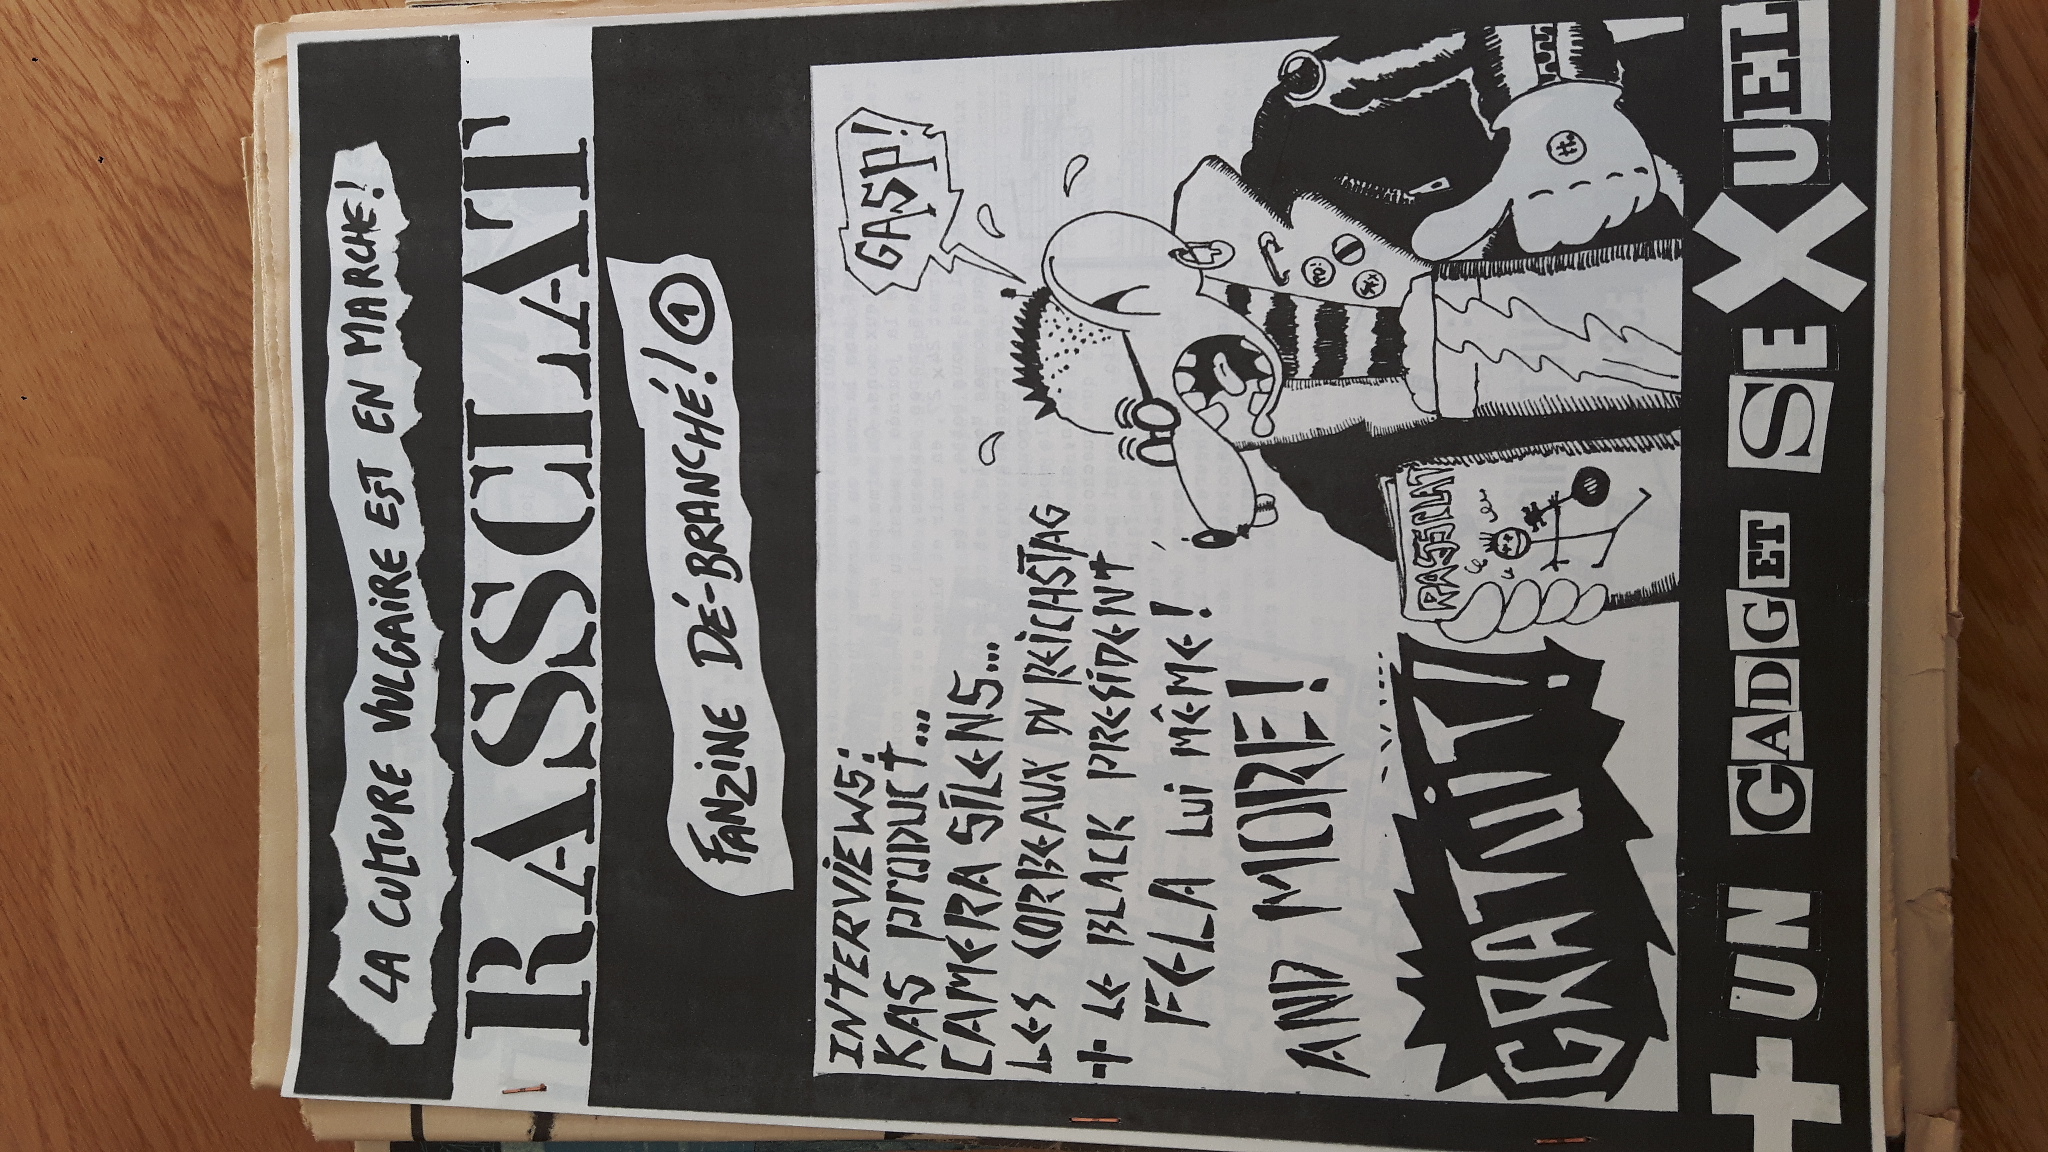 LA CULTURE VULGAIRE EST EN MARCHE!
RASSCLAT
FANZINE DÉ-BRANCHÉ! 1
INTERVIEWS:
KAS PRODUCT...
CAMERA SILENS...
LES CORBEAUX DU REICHSTAG
+ LE BLACK PRESIDENT
FELA LUI MÊME!
AND MORE!
GASP!
RASSCLAT
GRATUIT!
+ UN GADGET SEXUEL